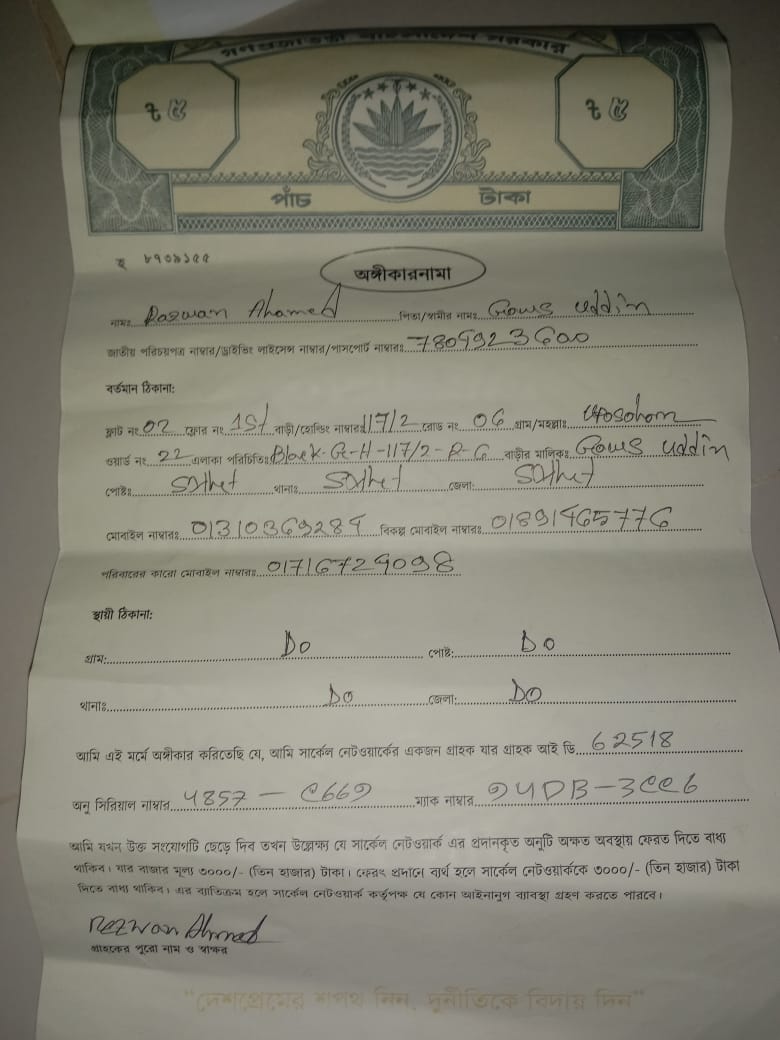 গণপ্রজাতন্ত্রী বাংলাদেশ সরকার
৳ ৫ ৳ ৫
পাঁচ টাকা
হ ৮৭০৯১৫৫
অঙ্গীকারনামা
নামঃ Razwan Ahamed পিতা/স্বামীর নামঃ Gous uddin
জাতীয় পরিচয়পত্র নাম্বার/ড্রাইভিং লাইসেন্স নাম্বার/পাসপোর্ট নাম্বারঃ 7805923600
বর্তমান ঠিকানা:
ফ্লাট নং 02 ফ্লোর নং 1st বাড়ী/হোল্ডিং নাম্বারঃ 117/2 রোড নং 06 গ্রাম/মহল্লাঃ uposohom
ওয়ার্ড নং 22 এলাকা পরিচিতিঃ Block-G-H-117/2-R-6 বাড়ীর মালিকঃ Gous uddin
পোষ্টঃ Sylhet থানাঃ Sylhet জেলা: Sylhet
মোবাইল নাম্বারঃ 01310369284 বিকল্প মোবাইল নাম্বারঃ 01891465776
পরিবারের কারো মোবাইল নাম্বারঃ 01716729098
স্থায়ী ঠিকানা:
গ্রাম: Do পোষ্ট: Do
থানাঃ Do জেলা: Do
আমি এই মর্মে অঙ্গীকার করিতেছি যে, আমি সার্কেল নেটওয়ার্কের একজন গ্রাহক যার গ্রাহক আই ডি 62518
অনু সিরিয়াল নাম্বার 4857 - C669 ম্যাক নাম্বার 94DB-3CC6
আমি যখন উক্ত সংযোগটি ছেড়ে দিব তখন উল্লেক্ষ্য যে সার্কেল নেটওয়ার্ক এর প্রদানকৃত অনুটি অক্ষত অবস্থায় ফেরত দিতে বাধ্য
থাকিব। যার বাজার মূল্য ৩০০০/- (তিন হাজার) টাকা। ফেরৎ প্রদানে ব্যর্থ হলে সার্কেল নেটওয়ার্ককে ৩০০০/- (তিন হাজার) টাকা
দিতে বাধ্য থাকিব। এর ব্যতিক্রম হলে সার্কেল নেটওয়ার্ক কর্তৃপক্ষ যে কোন আইনানুগ ব্যবস্থা গ্রহণ করতে পারবে।
Rezwan Ahmed
গ্রাহকের পুরো নাম ও স্বাক্ষর
"দেশপ্রেমের শপথ নিন, দুর্নীতিকে বিদায় দিন"